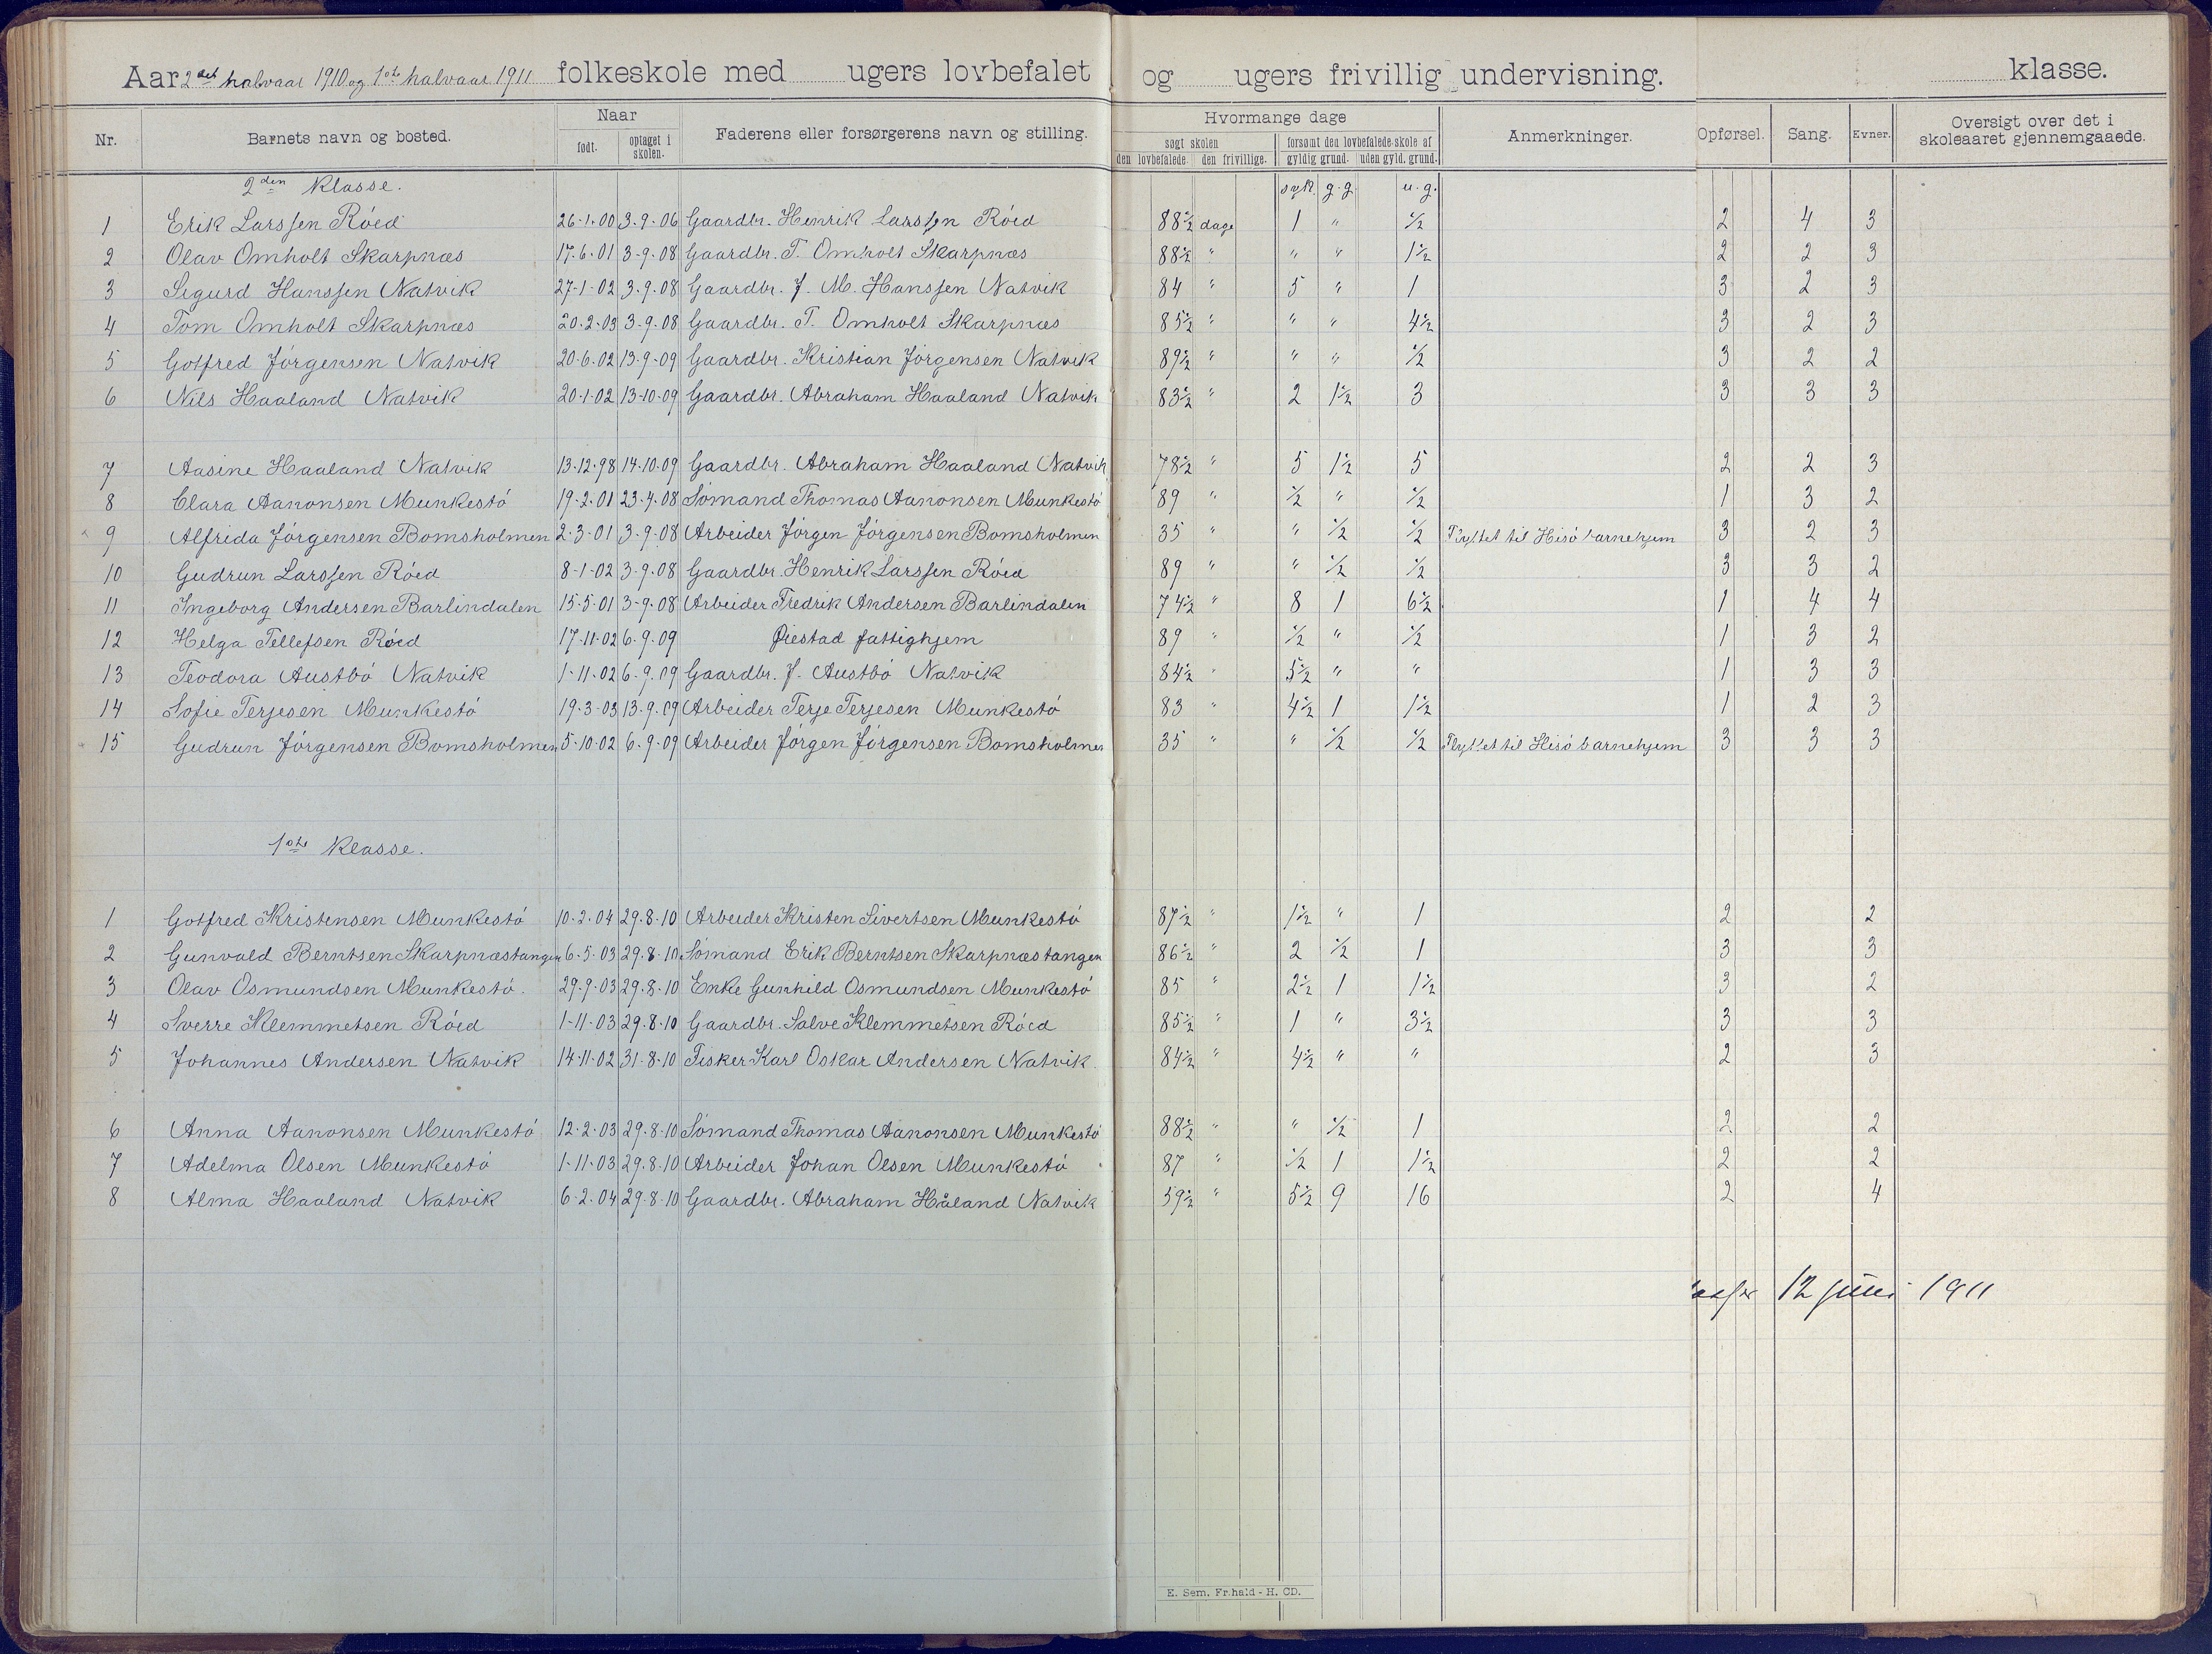 Aar 2det halvaar 1910 og 1ste halvaar 1911 folkeskole med ugers lovbefalet og ugers frivillig undervisning. klasse.
Nr. Barnets navn og bosted. Naar født. optaget i skolen. Faderens eller forsørgerens navn og stilling. Hvormange dage søgt skolen den lovbefalede. den frivillige. forsømt den lovbefalede skole af gyldig grund. uden gyld. grund. Anmerkninger. Opførsel. Sang. Evner. Oversigt over det i skoleaaret gjennemgaaede.
2den klasse. syk. g.g. u.g.
1 Erik Larssen Röed 26-1-00 3-9-06 Gaardbr. Henrik Larssen Röed 88½ dage 1 " ½ 2 4 3
2 Olav Omholt Skarpnæs 17-6-01 3-9-08 Gaardbr. T. Omholt Skarpnæs 88½ " " " 1½ 2 2 3
3 Sigurd Hanssen Natvik 27-1-02 3-9-08 Gaardbr. J. M. Hanssen Natvik 84 " 5 " 1 3 2 3
4 Tom Omholt Skarpnæs 20-2-03 3-9-08 Gaardbr. T. Omholt Skarpnæs 85½ " " " 4½ 3 2 3
5 Gotfred Jörgensen Natvik 20-6-02 13-9-09 Gaardbr. Kristian Jörgensen Natvik 89½ " " " ½ 3 2 2
6 Nils Haaland Natvik 20-1-02 13-10-09 Gaardbr. Abraham Haaland Natvik 83½ " 2 1½ 3 3 3 3
7 Aasine Haaland Natvik 13-12-98 14-10-09 Gaardbr. Abraham Haaland Natvik 78½ " 5 1½ 5 2 2 3
8 Clara Aanonsen Munkestö 19-2-01 23-4-08 Sömand Thomas Aanonsen Munkestö 89 " ½ " ½ 1 3 2
9 Alfrida Jörgensen Bomsholmen 2-3-01 3-9-08 Arbeider Jörgen Jörgensen Bomsholmen 35 " " ½ ½ Flyttet til Hisö barnehjem 3 2 3
10 Gudrun Larssen Röed 8-1-02 3-9-08 Gaardbr. Henrik Larssen Röed 89 " " ½ ½ 3 3 2
11 Ingeborg Andersen Barlindalen 15-5-01 3-9-08 Arbeider Fredrik Andersen Barlindalen 74½ " 8 1 6½ 1 4 4
12 Helga Tellefsen Röed 17-11-02 6-9-09 Øiestad fattighjem 89 " ½ " ½ 1 3 2
13 Teodora Austbö Natvik 1-11-02 6-9-09 Gaardbr. J. Austbö Natvik 84½ " 5½ " " 1 3 3
14 Sofie Terjesen Munkestö 19-3-03 13-9-09 Arbeider Terje Terjesen Munkestö 83 " 4½ 1 1½ 1 2 3
15 Gudrun Jörgensen Bomsholmen 5-10-02 6-9-09 Arbeider Jörgen Jörgensen Bomsholmen 35 " " ½ ½ Flyttet til Hisö barnehjem 3 3 3
1ste klasse.
1 Gotfred Kristensen Munkestö 10-2-04 29-8-10 Arbeider Kristen Sivertsen Munkestö 87½ " 1½ " 1 2 2
2 Gunvald Berntsen Skarpnæstangen 6-5-03 29-8-10 Sömand Erik Berntsen Skarpnæstangen 86½ " 2 ½ 1 3 3
3 Olav Osmundsen Munkestö. 29-9-03 29-8-10 Enke Gunhild Osmundsen Munkestö 85 " 2½ 1 1½ 3 2
4 Sverre Klemmetsen Röed 1-11-03 29-8-10 Gaardbr. Salve Klemmetsen Röed 85½ " 1 " 3½ 3 3
5 Johannes Andersen Natvik 14-11-02 31-8-10 Fisker Karl Oskar Andersen Natvik. 84½ " 4½ " " 2 3
6 Anna Aanonsen Munkestö 12-2-03 29-8-10 Sömand Thomas Aanonsen Munkestö 88½ " " ½ 1 2 2
7 Adelma Olsen Munkestö 1-11-03 29-8-10 Arbeider Johan Olsen Munkestö 87 " ½ 1 1½ 2 2
8 Alma Haaland Natvik 6-2-04 29-8-10 Gaardbr. Abraham Håland Natvik 59½ " 5½ 9 16 2 4
12 juni 1911
E. Sem. Fr.hald - H. CD.